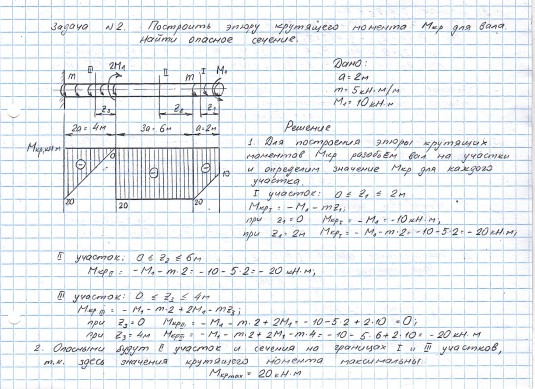 Задача №2. Построить эпюру крутящего момента Мкр для вала.
Найти опасное сечение.
Дано:
a = 2м
m = 5 кН·м/м
M₁ = 10 кН·м
m III 2M₁ II m I M₁
z₃ z₂ z₁
2a = 4м 3a = 6м a = 2м
Мкр, кН·м 0
⊖ ⊖ ⊖ 10
20 20 20
Решение
1. Для построения эпюры крутящих
моментов Мкр разобьём вал на участки
и определим значение Мкр для каждого
участка.
I участок: 0 ≤ z₁ ≤ 2м
Мкр I = - M₁ - mz₁;
при z₁=0 Мкр I = - M₁ = -10 кН·м,
при z₁=2м Мкр I = - M₁ - m·2 = -10-5·2 = -20 кН·м;
II участок: 0 ≤ z₂ ≤ 6м
Мкр II = - M₁ - m·2 = -10-5·2 = -20 кН·м;
III участок: 0 ≤ z₃ ≤ 4м
Мкр III = - M₁ - m·2 + 2M₁ - mz₃;
при z₃=0 Мкр III = - M₁ - m·2 + 2M₁ = -10-5·2+2·10 = 0;
при z₃=4м Мкр III = - M₁ - m·2 + 2M₁ - m·4 = -10-5·6+2·10 = -20 кН·м
2. Опасными будут II участок и сечения на границах I и III участков,
т.к. здесь значения крутящего момента максимальны
Мкр max = 20 кН·м